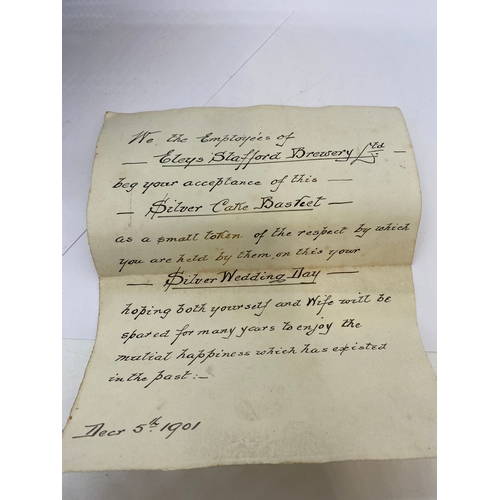 We, the Employées of
— Eleys Stafford Brewery Ltd —
beg your acceptance of this —
— Silver Cake Basket —
as a small token of the respect by which
you are held by them, on this your
— Silver Wedding Day —
hoping both yourself and Wife will be
spared for many years to enjoy the
mutial happiness which has existed
in the past:—
Decr 5th 1901